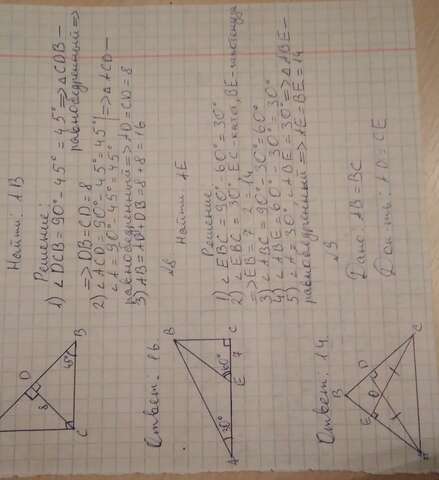 Найти: AB
Решение:
1) ∠DCB = 90° - 45° = 45° ⇒ △CDB —
равнобедренный ⇒
⇒ DB = CD = 8
2) ∠ACD = 90° - 45° = 45°
∠A = 90° - 45° = 45° ⇒ △ACD —
равнобедренный ⇒ AD = CD = 8
3) AB = AD + DB = 8 + 8 = 16
D
8
45°
B
C
Ответ: 16
№8
Найти: AE
Решение:
1) ∠EBC = 90° - 60° = 30°
2) ∠EBC = 30°, EC - катет, BE - гипотенуза
⇒ EB = 7 · 2 = 14
3) ∠ABC = 90° - 30° = 60°
4) ∠ABE = 60° - 30° = 30°
5) ∠A = 30° = ∠ABE = 30° ⇒ △ABE —
равнобедренный ⇒ AE = BE = 14
B
A
30°
E
60°
7
C
Ответ: 14
№9
Дано: AB = BC
Док-ть: AD = CE
B
E
D
O
C